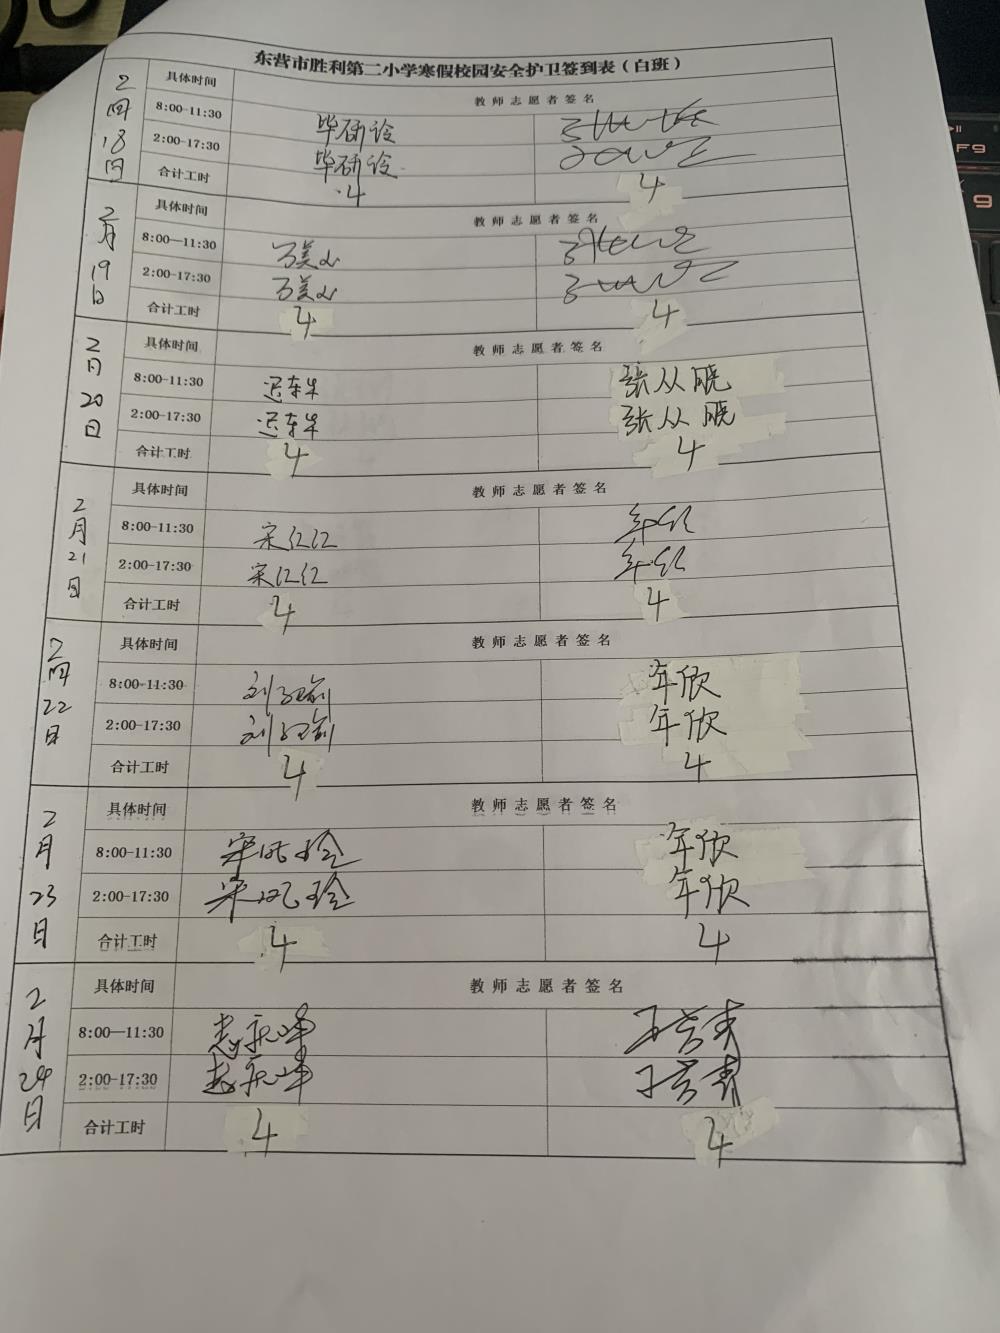 东营市胜利第二小学寒假校园安全护卫签到表（白班）
2月18日
具体时间 教师志愿者签名
8:00-11:30 毕研谂
2:00-17:30 毕研谂
合计工时 4 4
2月19日
具体时间 教师志愿者签名
8:00—11:30
2:00-17:30
合计工时 4 4
2月20日
具体时间 教师志愿者签名
8:00-11:30 迟车牛 张从晓
2:00-17:30 迟车牛 张从晓
合计工时 4 4
2月21日
具体时间 教师志愿者签名
8:00-11:30 宋红红
2:00-17:30 宋红红
合计工时 4 4
2月22日
具体时间 教师志愿者签名
8:00-11:30 年欣
2:00-17:30 年欣
合计工时 4 4
2月23日
具体时间 教师志愿者签名
8:00-11:30 年欣
2:00-17:30 年欣
合计工时 4 4
2月24日
具体时间 教师志愿者签名
8:00—11:30
2:00-17:30
合计工时 4 4
F9
9